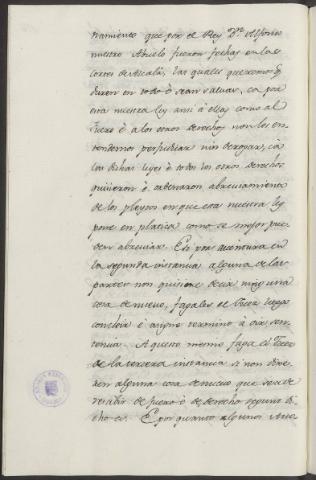 namiento que por el Rey Dⁿ Alfonso
nuestro Abuelo fueron fechas en las
Cortes de Alcalá, las quales queremos q̃
duren en todo è sean salvas, ca por
esta nuestra ley anni à ellas como al
fuero è a los otros derechos non los en-
tendemos perjudicar nin derogar, cà
las dichas leyes è todos los otros derechos
quisieron è cataron abreviamiento
de los pleytos en que esta nuestra ley
pone en platica como se mejor pue-
den abreviar. E si por aventura en
la segunda instancia alguna de las
partes non quisiere decir ninguna
cosa de nuevo, fagales el Juez luego
concluir è asigne termino à dir sen-
tencia. Aquesto mesmo faga el Juez
de la tercera instancia si non dixe-
ren alguna cosa de nuevo que sea de
rescibir de fuero è de derecho segunt di-
cho es. E por quanto algunos